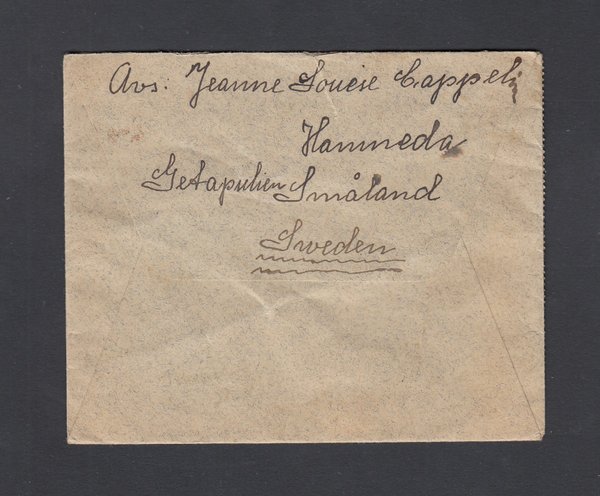 Avs: Jeanne Louise Cappel
Hamneda
Getapulien Småland
Sweden